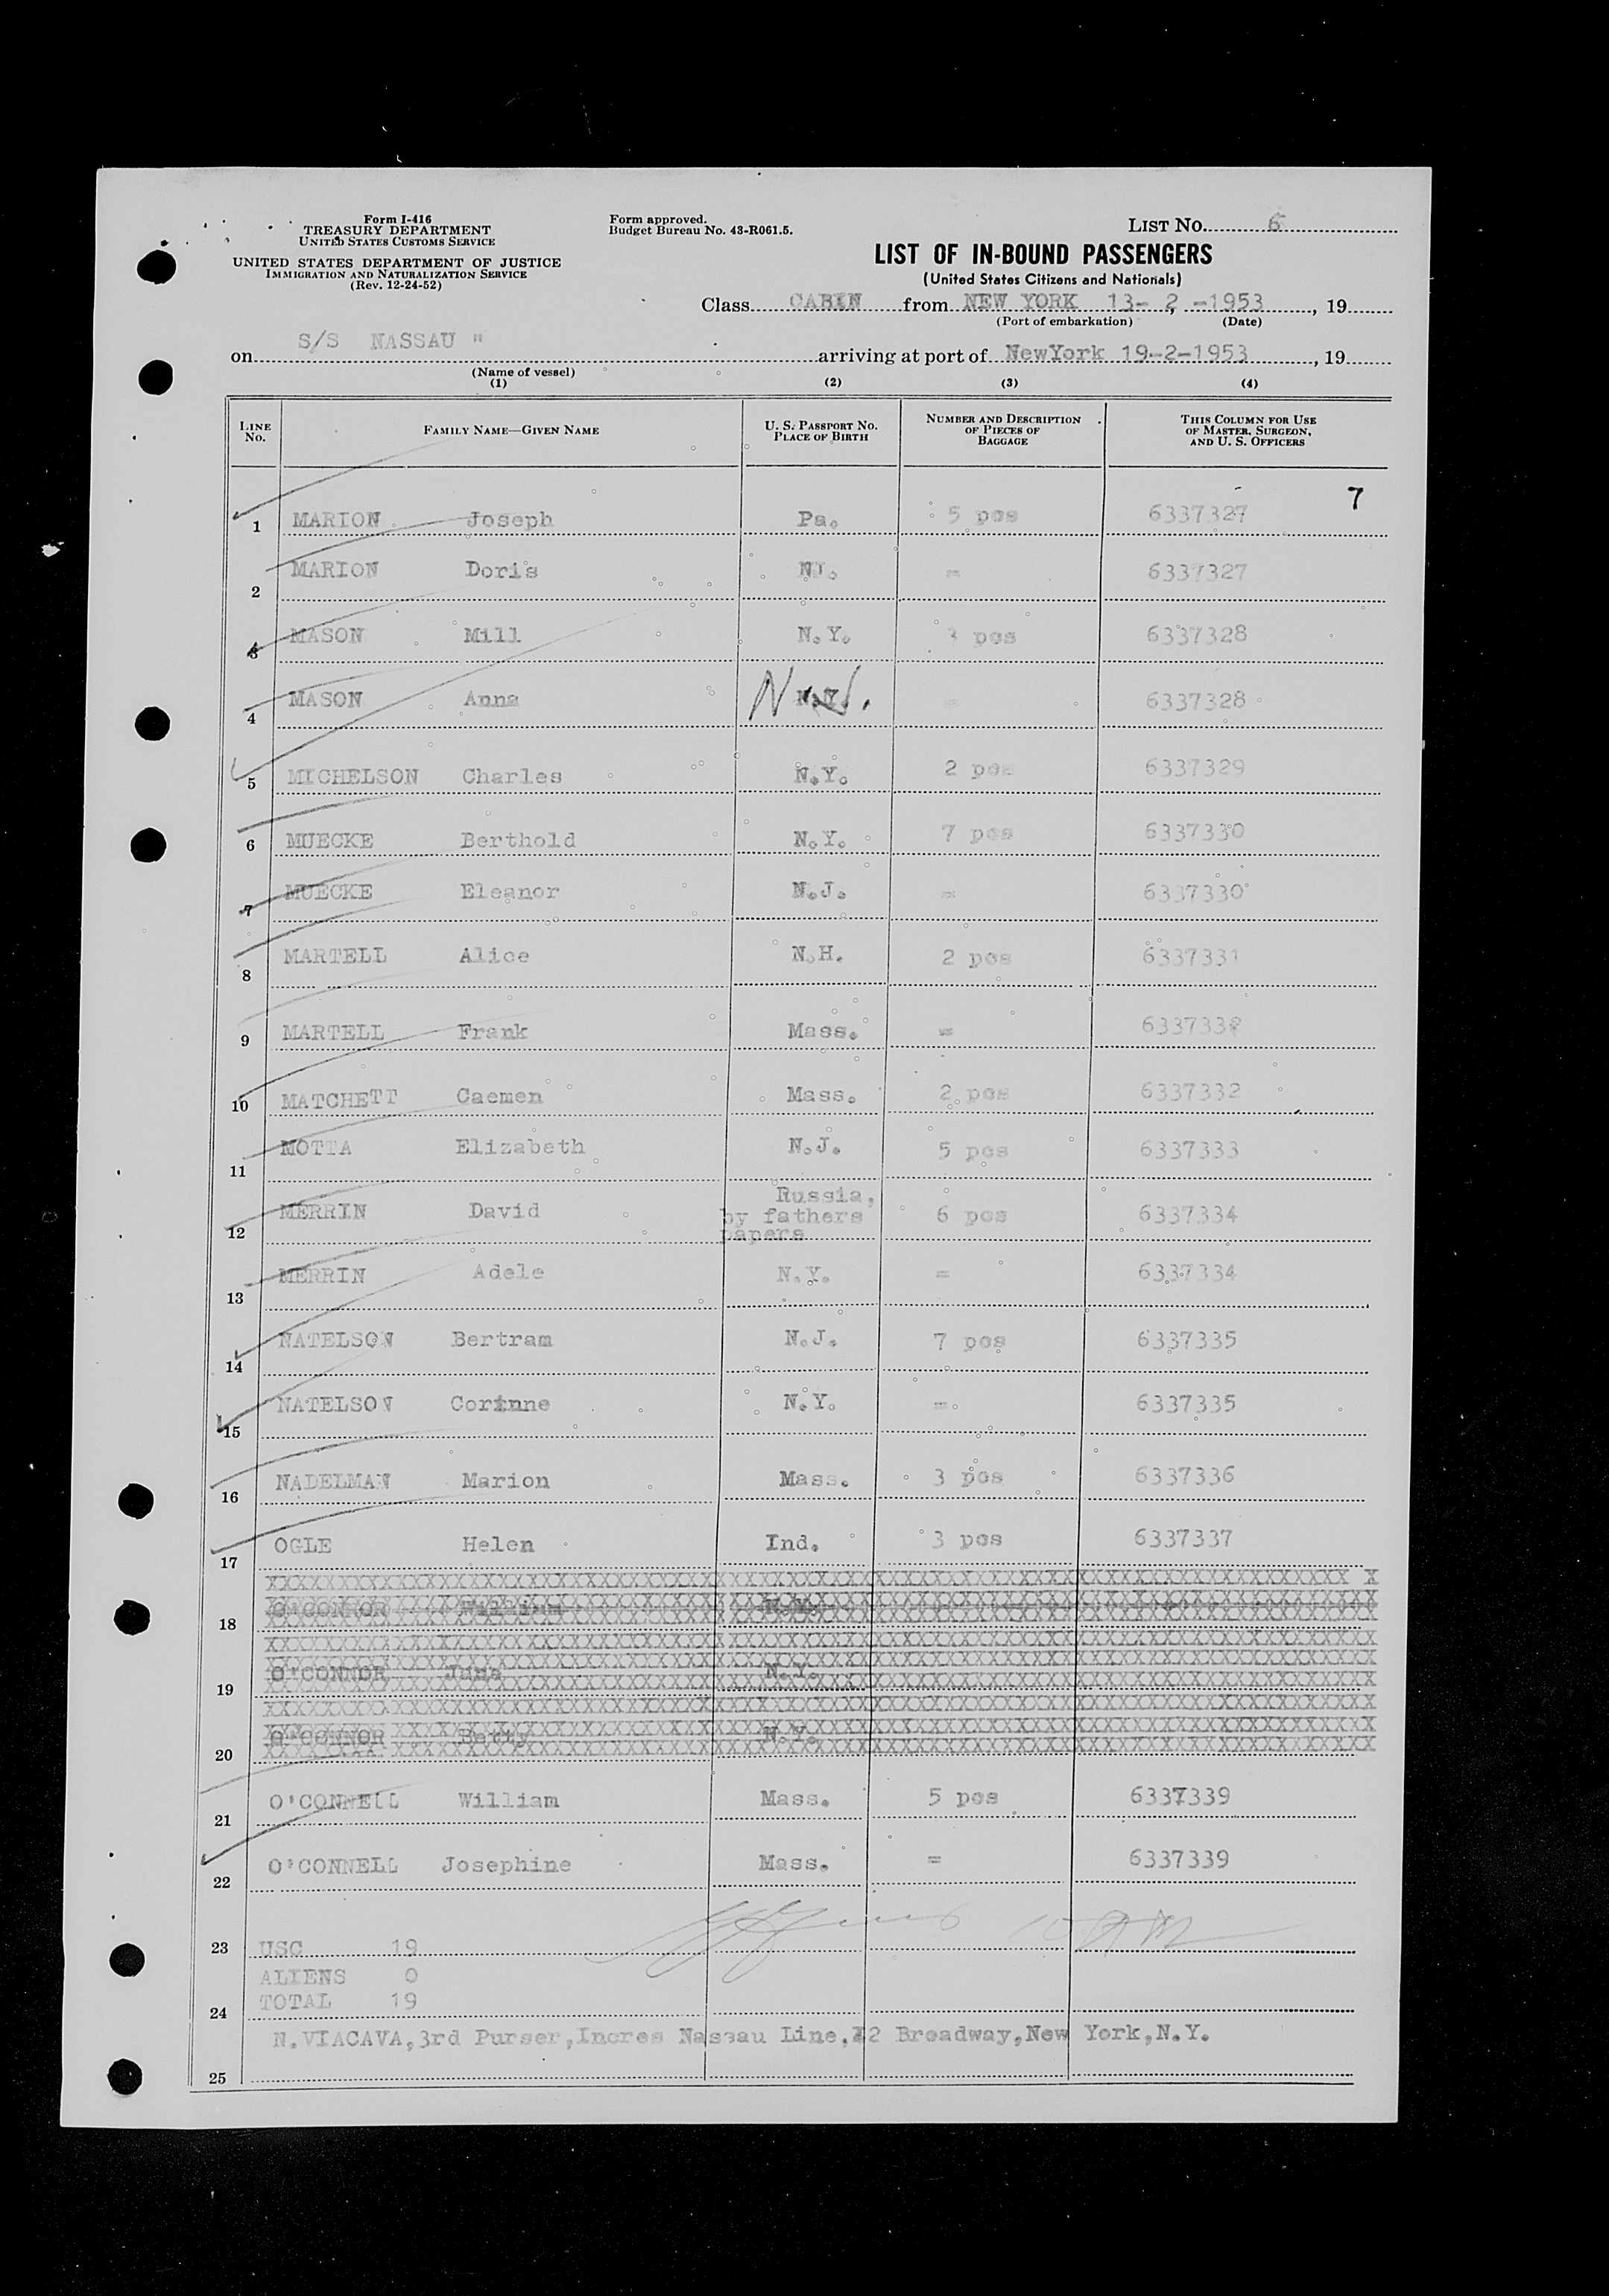 Form I-416
TREASURY DEPARTMENT
UNITED STATES CUSTOMS SERVICE
UNITED STATES DEPARTMENT OF JUSTICE
IMMIGRATION AND NATURALIZATION SERVICE
(Rev. 12-24-52)
Form approved.
Budget Bureau No. 43-R061.5.
LIST NO. 6
LIST OF IN-BOUND PASSENGERS
(United States Citizens and Nationals)
Class CABIN from NEW YORK 13- 2 -1953, 19
(Port of embarkation) (Date)
on S/S NASSAU " arriving at port of NewYork 19-2-1953, 19
(Name of vessel)
(1) (2) (3) (4)
LINE NO. FAMILY NAME—GIVEN NAME U. S. PASSPORT NO. PLACE OF BIRTH NUMBER AND DESCRIPTION OF PIECES OF BAGGAGE THIS COLUMN FOR USE OF MASTER, SURGEON, AND U. S. OFFICERS
7
1 MARION Joseph Pa. 5 pcs 6337327
2 MARION Doris NJ. = 6337327
3 MASON Mill N.Y. 3 pcs 6337328
4 MASON Anna N.J. = 6337328
5 MICHELSON Charles N.Y. 2 pcs 6337329
6 MUECKE Berthold N.Y. 7 pcs 6337330
7 MUECKE Eleanor N.J. = 6337330
8 MARTELL Alice N.H. 2 pcs 6337331
9 MARTELL Frank Mass. =
10 MATCHETT Caemen Mass. 2 pcs 6337332
11 MOTTA Elizabeth N.J. 5 pcs 6337333
12 MERRIN David Russia, by fathers papers 6 pcs 6337334
13 MERRIN Adele N.Y. = 6337334
14 NATELSON Bertram N.J. 7 pcs 6337335
15 NATELSON Corinne N.Y. = 6337335
16 NADELMAN Marion Mass. 3 pcs 6337336
17 OGLE Helen Ind. 3 pcs 6337337
18 O'CONNOR William N.Y.
19 O'CONNOR June N.Y.
20 O'CONNOR Betty N.Y.
21 O'CONNELL William Mass. 5 pcs 6337339
22 O'CONNELL Josephine Mass. = 6337339
23 USC 19
ALIENS 0
24 TOTAL 19
N.VIACAVA,3rd Purser,Incres Nassau Line, Broadway,New York,N.Y.
25